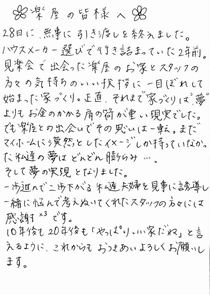 楽屋の皆様へ
28日に、無事に引き渡しを終えました。
ハウスメーカー選びで行き詰まっていた2年前。
見学会で出会った楽屋のお家とスタッフの
方々の気持ちのいい挨拶に一目ぼれして
始まった家づくり。正直、それまで家づくりは“夢”
よりもお金のかかる肩の荷が重い現実でした。
でも楽屋との出会いでその思いは一転。まだ
マイホームに漠然としたイメージしか持っていなかっ
た私達の夢はどんどん膨らみ…。
そして夢の実現となりました。
一歩進んで二歩下がる私達夫婦を見事に誘導し
一緒に悩んで考えぬいてくれたスタッフの方々には
感謝×3です。
10年後も20年後も「やっぱりいい家だね」と言
えるように、これからもおつきあいよろしくお願いし
ます。